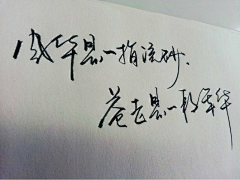 风华是一指流砂，
苍老是一段年华